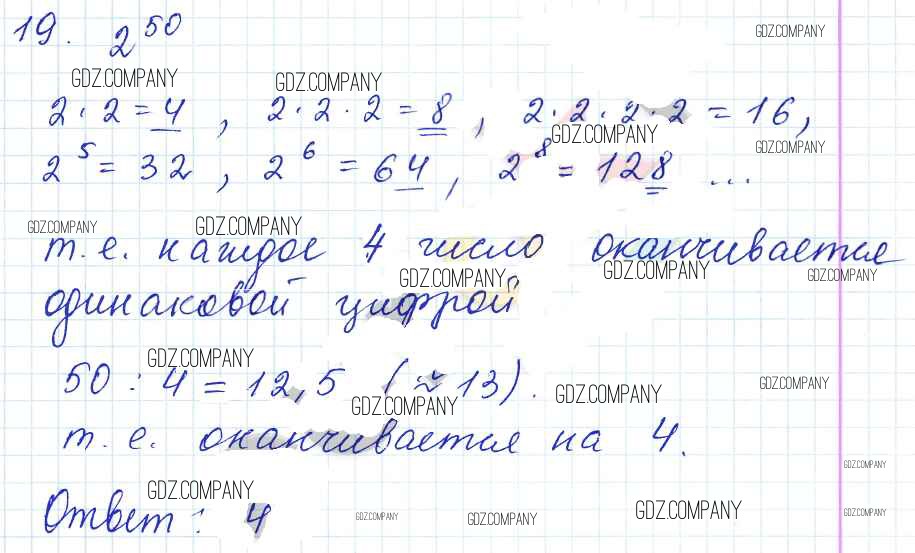 19. 2^50
GDZ.COMPANY
GDZ.COMPANY GDZ.COMPANY
2 · 2 = 4 , 2 · 2 · 2 = 8 , 2 · 2 · 2 · 2 = 16,
GDZ.COMPANY GDZ.COMPANY
2^5 = 32 , 2^6 = 64 , 2^8 = 128 ...
GDZ.COMPANY GDZ.COMPANY
т.е. каждое 4 число оканчивается
GDZ.COMPANY GDZ.COMPANY GDZ.COMPANY
одинаковой цифрой
GDZ.COMPANY
50 : 4 = 12,5 (≈ 13).
GDZ.COMPANY GDZ.COMPANY GDZ.COMPANY
т.е. оканчивается на 4.
GDZ.COMPANY
GDZ.COMPANY
Ответ: 4
GDZ.COMPANY GDZ.COMPANY GDZ.COMPANY GDZ.COMPANY